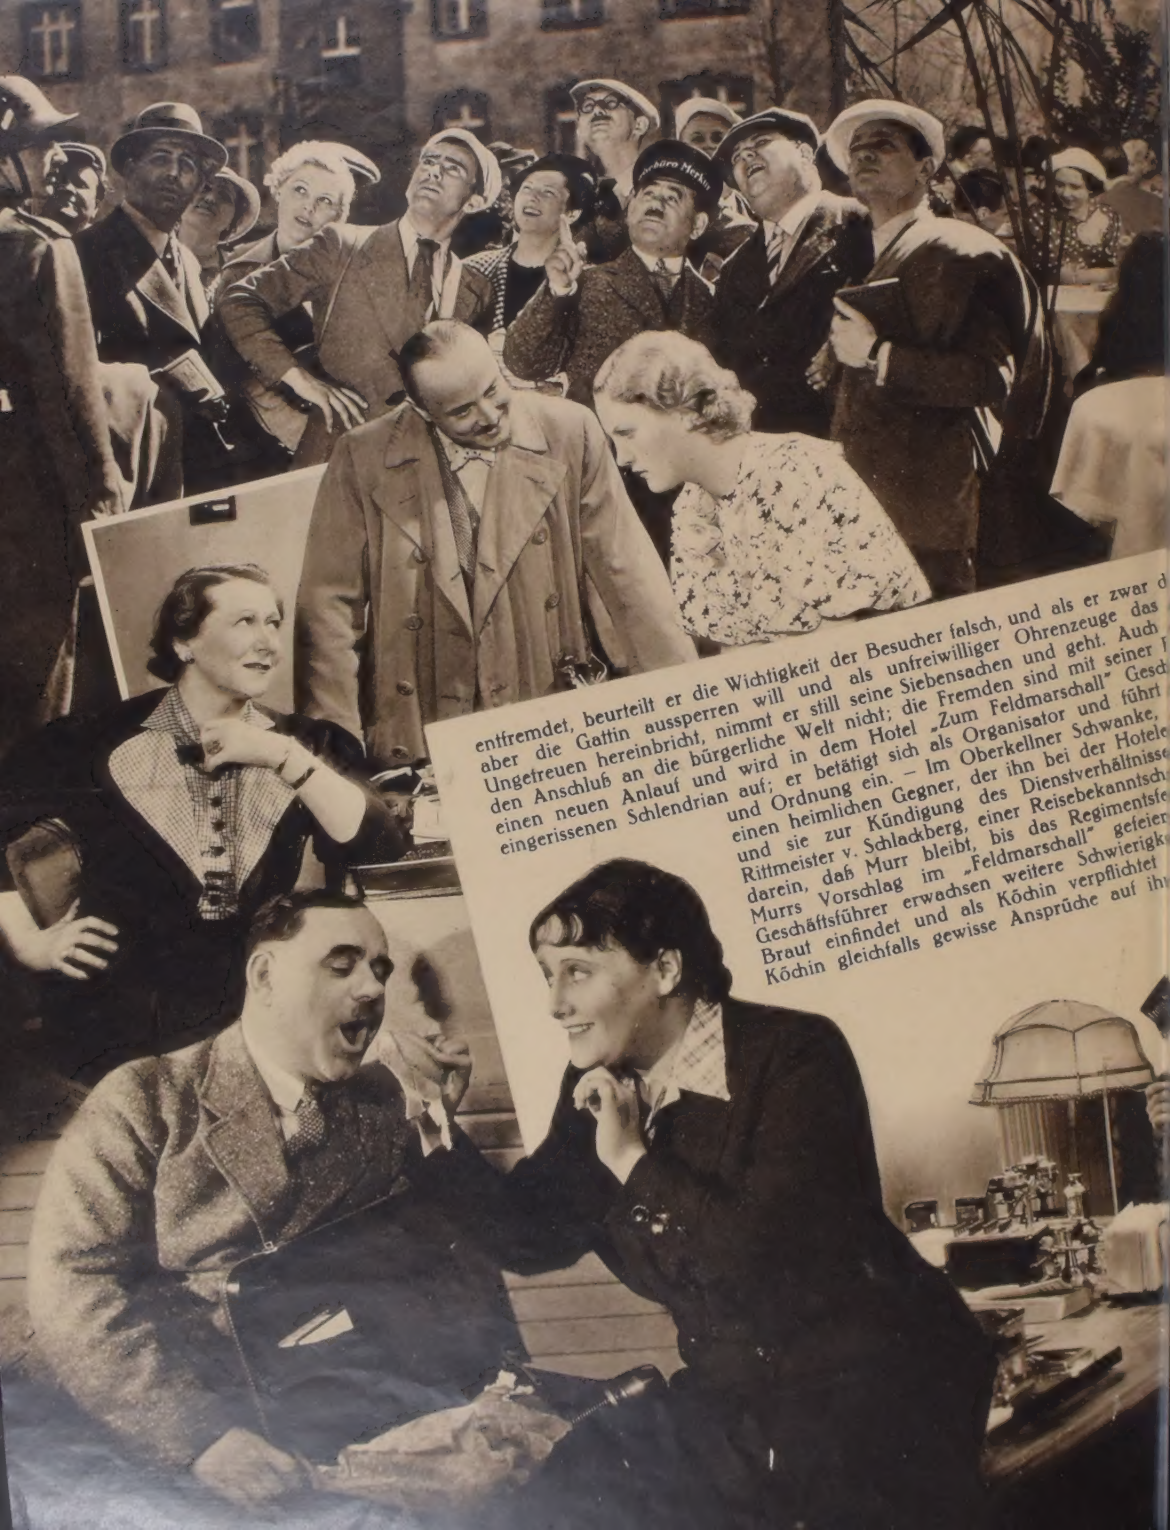 ebüro Merkur
entfremdet, beurteilt er die Wichtigkeit der Besucher falsch, und als er zwar d
aber die Gattin aussperren will und als unfreiwilliger Ohrenzeuge das
Ungetreuen hereinbricht, nimmt er still seine Siebensachen und geht. Auch
den Anschluß an die bürgerliche Welt nicht; die Fremden sind mit seiner
einen neuen Anlauf und wird in dem Hotel „Zum Feldmarschall" Gesch
eingerissenen Schlendrian auf; er betätigt sich als Organisator und führt
und Ordnung ein. – Im Oberkellner Schwanke,
einen heimlichen Gegner, der ihn bei der Hotele
und sie zur Kündigung des Dienstverhältnisse
Rittmeister v. Schlackberg, einer Reisebekanntscha
darein, daß Murr bleibt, bis das Regimentsfe
Murrs Vorschlag im „Feldmarschall" gefeier
Geschäftsführer erwachsen weitere Schwierigk
Braut einfindet und als Köchin verpflichtet
Köchin gleichfalls gewisse Ansprüche auf ihn